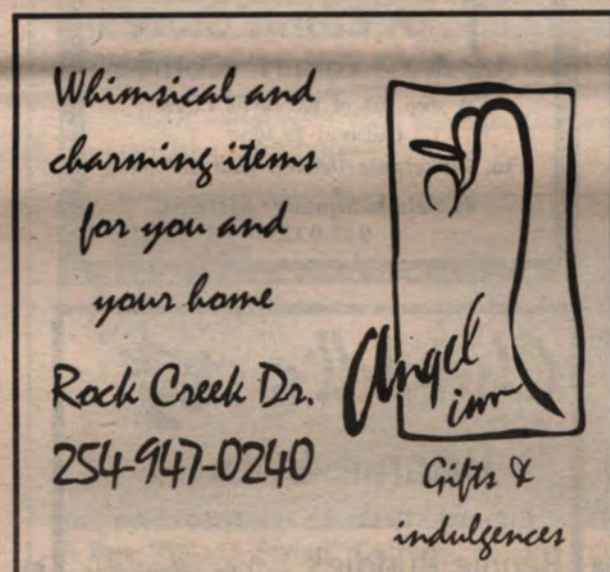 Whimsical and
charming items
for you and
your home
Rock Creek Dr.
254-947-0240
Angel
inn
Gifts &
indulgences